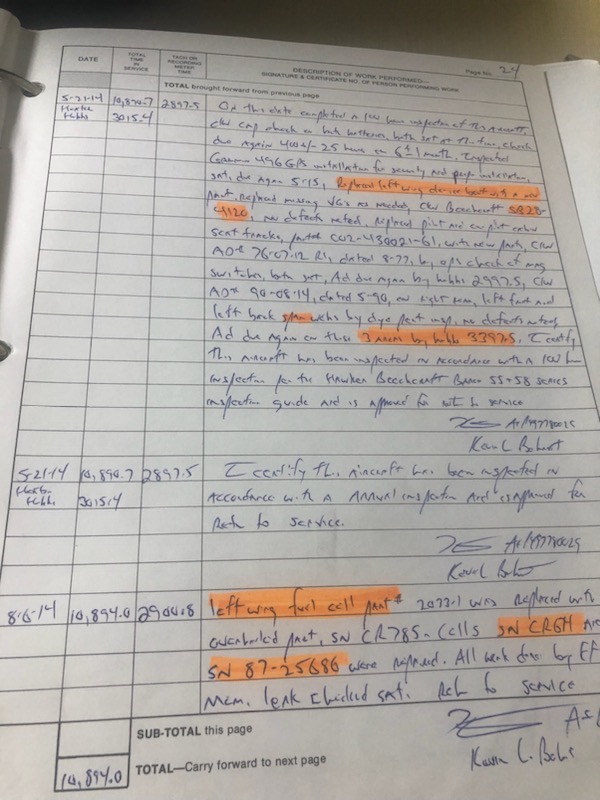 DATE
TOTAL TIME IN SERVICE
TACH OR RECORDING METER TIME
DESCRIPTION OF WORK PERFORMED—
SIGNATURE & CERTIFICATE NO. OF PERSON PERFORMING WORK
Page No. 24
TOTAL brought forward from previous page
5-21-14 10,890.7 2897.5 On this date completed a 100 hour inspection of this aircraft,
Hobbs 3015.4 C/W cap check on both batteries, both sat at this time, check
due again +/- 25 hours or 6 ± 1 month. Inspected
Garmin 496 GPS installation for security and
sat, due again 5-15, Replaced left wing deice boot with a new
part, Replaced missing VG's as needed, C/W Beechcraft SB 20-
4120, no defects noted, Replaced pilot and copilot
seat tracks, part# 002-430021-61, with new parts, C/W
AD# 76-07-12 R1, dated 8-77, by ops check of mag
switches, both sat, Ad due again by hobbs 2997.5, C/W
AD# 90-08-14, dated 5-90, on right rear, left front and
left back spar webs by dye pent insp, no defects noted,
Ad due again on these 3 areas by hobbs 3397.5. I certify
This aircraft has been inspected in accordance with a 100 hour
inspection per the Hawker Beechcraft Baron 55+58 series
inspection guide and is approved for return to service
5-21-14 10,890.7 2897.5 I certify this aircraft has been inspected in
Hobbs 3015.4 accordance with a Annual inspection and is approved for
Return to service.
8-6-14 10,894.0 2900.8 left wing fuel cell part# 2073-1 was Replaced with
overhauled part, SN CR785. Cells SN CR6H and
SN 87-25686 were repaired. All work done by EF
Mem. leak checked sat. Return to service
SUB-TOTAL this page
10,894.0 TOTAL—Carry forward to next page